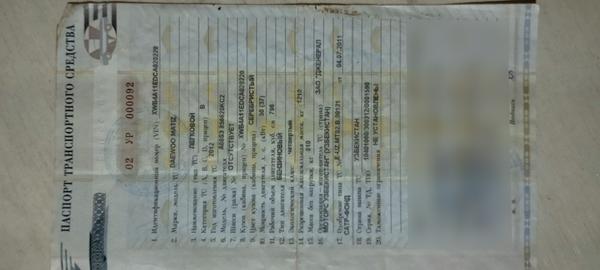 ПАСПОРТ ТРАНСПОРТНОГО СРЕДСТВА
02 УР 000092
1. Идентификационный номер (VIN) XWB4A11EDCA820220
2. Марка, модель ТС DAEWOO MATIZ
3. Наименование (тип ТС) ЛЕГКОВОЙ
4. Категория ТС (A, B, C, D, прицеп) B
5. Год изготовления ТС 2012
6. Модель, № двигателя
7. Шасси (рама) № ОТСУТСТВУЕТ
8. Кузов (кабина, прицеп) № XWB4A11EDCA820220
9. Цвет кузова (кабины, прицепа) СЕРЕБРИСТЫЙ
10. Мощность двигателя, л. с. (кВт) 50 (37)
11. Рабочий объем двигателя, куб. см 796
12. Тип двигателя БЕНЗИНОВЫЙ
13. Экологический класс четвертый
14. Разрешенная максимальная масса, кг 1210
15. Масса без нагрузки, кг 810
16. Организация - изготовитель ТС (страна) ЗАО "ДЖЕНЕРАЛ
МОТОРС УЗБЕКИСТАН" (УЗБЕКИСТАН)
17. Одобрение типа ТС № от 04.07.2011
САТР-ФОНД
18. Страна вывоза ТС УЗБЕКИСТАН
19. Серия, № ТД, ТПО
20. Таможенные ограничения НЕ УСТАНОВЛЕНЫ
Подпись
М. П.